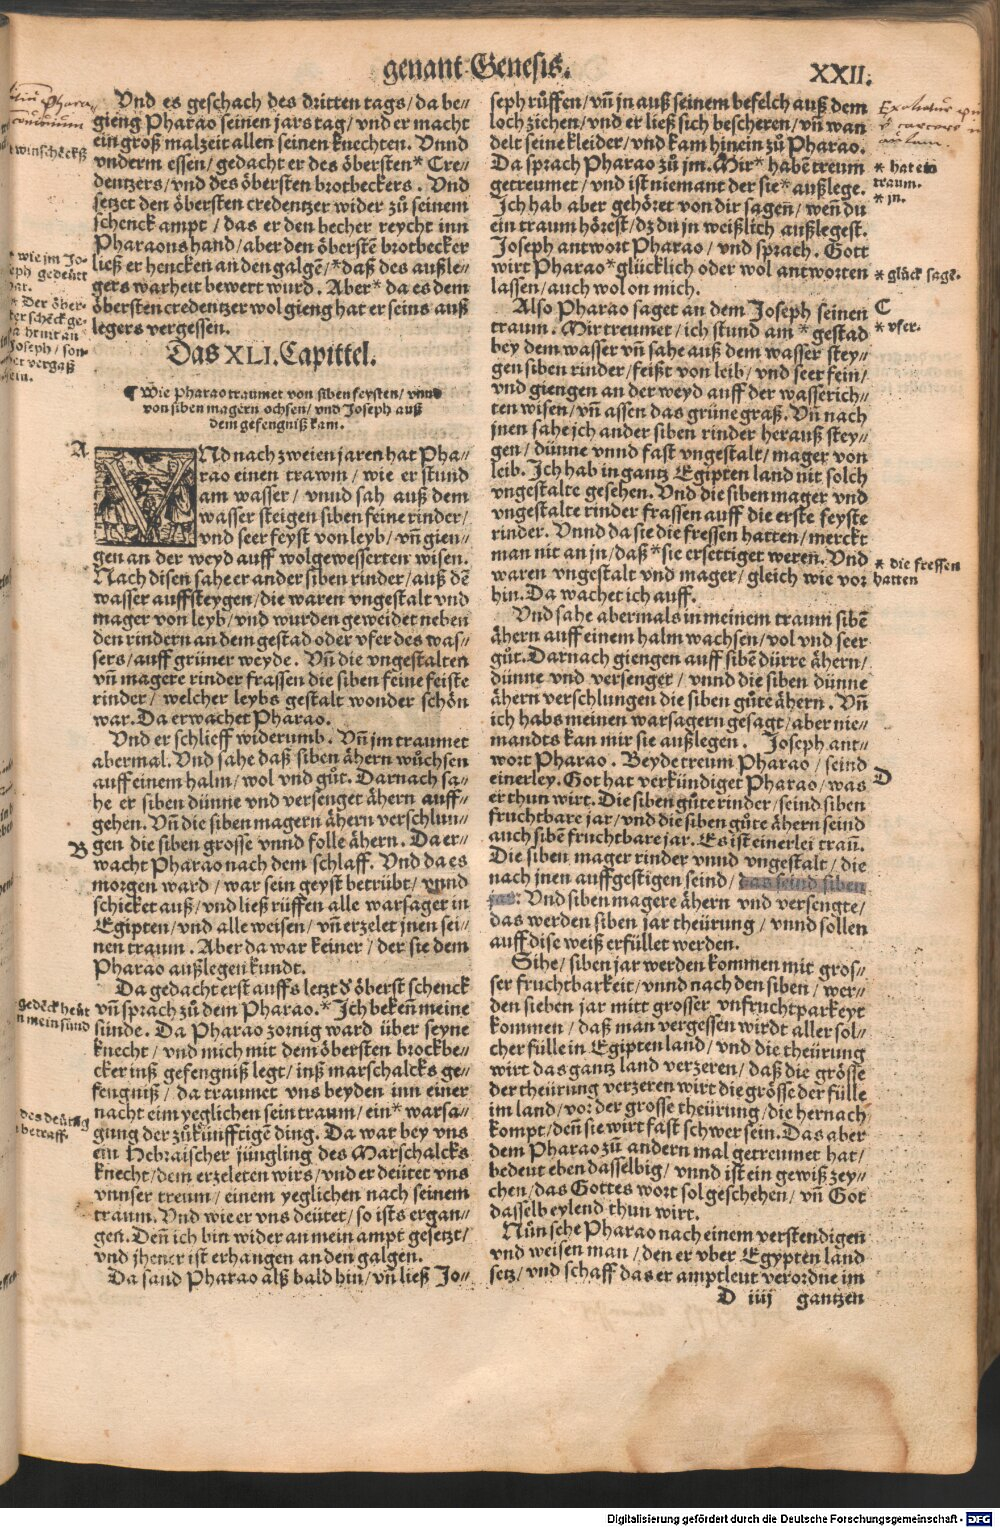 genant Genesis.
XXII.
Vnd es geschach des dritten tags/ da be⸗
gieng Pharao seinen jars tag/ vnd er macht
ein groß malzeit allen seinen knechten. Vnnd
vnderm essen/ gedacht er des öbersten* Cre⸗
dentzers/ vnd des öbersten brotbeckers. Vnd
setzet den öbersten credentzer wider zů seinem
schenck ampt/ das er den becher reycht inn
Pharaons hand/ aber den öberstē brotbecker
ließ er hencken an den galgē/ *daß des außle⸗
gers warheit bewert wurd. Aber* da es dem
öbersten credentzer wol gieng hat er seins auß
legers vergessen.
* wie jm Jo⸗
seph gedeütt
hat.
* Der öber⸗
Joseph/ son⸗
der vergaß
sein.
Das XLI. Capittel.
¶ Wie Pharao traumet von siben feysten/ vnnd
von siben magern ochsen/ vnd Joseph auß
dem gefengniß kam.
A
VNd nach zweien jaren hat Pha⸗
rao einen trawm/ wie er stund
am wasser/ vnnd sah auß dem
wasser steigen siben feine rinder/
vnd seer feyst von leyb/ vn̄ gien⸗
gen an der weyd auff wolgewesserten wisen.
Nach disen sahe er ander siben rinder/ auß dē
wasser auffsteygen/ die waren vngestalt vnd
mager von leyb/ vnd wurden geweidet neben
den rindern an dem gestad oder vfer des was⸗
sers/ auff grüner weyde. Vn̄ die vngestalten
vn̄ magere rinder frassen die siben feine feiste
rinder/ welcher leybs gestalt wonder schön
war. Da erwachet Pharao.
Vnd er schlieff widerumb. Vn̄ jm traumet
abermal. Vnd sahe daß siben ähern wůchsen
auff einem halm/ wol vnd gůt. Darnach sa⸗
he er siben dünne vnd versenget ähern auff⸗
gehen. Vn̄ die siben magern ähern verschlun⸗
B
gen die siben grosse vnnd folle ähern. Da er⸗
wacht Pharao nach dem schlaff. Vnd da es
morgen ward/ war sein geyst betrübt/ vnnd
schicket auß/ vnd ließ rüffen alle warsager in
Egipten/ vnd alle weisen/ vn̄ erzelet jnen sei⸗
nen traum. Aber da war keiner/ der sie dem
Pharao außlegen kundt.
Da gedacht erst auffs letzt ð öberst schenck
vn̄ sprach zů dem Pharao.* Ich bekeñ meine
sünde. Da Pharao zornig ward über seyne
knecht/ vnd mich mit dem öbersten brockbe⸗
cker inß gefengniß legt/ inß marschalcks ge⸗
fengniß/ da traumet vns beyden inn einer
nacht eim yeglichen sein traum/ ein* warsa⸗
gung der zůkünfftigē ding. Da war bey vns
ein Hebraischer jüngling des Marschalcks
knecht/ dem erzeleten wirs/ vnd er deütet vns
vnnser treum/ einem yeglichen nach seinem
traum. Vnd wie er vns deütet/ so ists ergan⸗
gen. Deñ ich bin wider an mein ampt gesetzt/
vnd jhener ist erhangen an den galgen.
Da sand Pharao alß bald hin/ vn̄ ließ Jo⸗
gedēck heüt
mein sünd
des deütūg
betraff.
seph růffen/ vn̄ jn auß seinem befelch auß dem
loch ziehen/ vnd er ließ sich bescheren/ vn̄ wan
delt seine kleider/ vnd kam hinein zů Pharao.
Da sprach Pharao zů jm. Mir* habē treum
getreumet/ vnd ist niemant der sie* außlege.
Ich hab aber gehöret von dir sageñ/ weñ du
ein traum hörest/ dz du jn weißlich außlegest.
Joseph antwort Pharao/ vnd sprach. Gott
wirt Pharao* glücklich oder wol antworten
lassen/ auch wol on mich.
* hat ein
traum.
* jn.
* glück sage.
Also Pharao saget an dem Joseph seinen
traum. Mir treumet/ ich stund am* gestad
bey dem wasser vn̄ sahe auß dem wasser stey⸗
gen siben rinder/ feißt von leib/ vnd seer fein/
vnd giengen an der weyd auff der wasserich⸗
ten wisen/ vn̄ assen das grüne graß. Vn̄ nach
jnen sahe ich ander siben rinder herauß stey⸗
gen/ dünne vnnd fast vngestalt/ mager von
leib. Ich hab in gantz Egipten land nit solch
vngestalte gesehen. Vnd die siben mager vnd
vngestalte rinder frassen auff die erste feyste
rinder. Vnnd da sie die fressen hatten/ merckt
man nit an jn/ daß* sie ersettiget weren. Vnd
waren vngestalt vnd mager/ gleich wie vor
hin. Da wachet ich auff.
C
* vfer.
* die fressen
hatten
Vnd sahe abermals in meinem traum sibē
ähern auff einem halm wachsen/ vol vnd seer
gůt. Darnach giengen auff sibē dürre ähern/
dünne vnd versenget/ vnnd die siben dünne
ähern verschlungen die siben gůte ähern. Vn̄
ich habs meinen warsagern gesagt/ aber nie⸗
mandts kan mir sie außlegen. Joseph ant⸗
wort Pharao. Beyde treum Pharao/ seind
einerley. Got hat verkündiget Pharao/ was
D
er thun wirt. Die siben gůte rinder/ seind siben
fruchtbare jar/ vnd die siben gůte ähern seind
auch sibē fruchtbare jar. Es ist einerlei traū.
Die siben mager rinder vnnd vngestalt/ die
nach jnen auffgestigen seind/ das seind siben
jar: Vnd siben magere ähern vnd versengte/
das werden siben jar theürung/ vnnd sollen
auff dise weiß erfüllet werden.
Sihe/ siben jar werden kommen mit gros⸗
ser fruchtbarkeit/ vnnd nach den siben/ wer⸗
den sieben jar mitt grosser vnfruchtparkeyt
kommen/ daß man vergessen wirdt aller sol⸗
cher fülle in Egipten land/ vnd die theürung
wirt das gantz land verzeren/ daß die grösse
der theürung verzeren wirt die grösse der fülle
im land/ vor der grosse theürung/ die hernach
kompt/ deñ sie wirt fast schwer sein. Das aber
dem Pharao zů andern mal getreumet hat/
bedeut eben dasselbig/ vnnd ist ein gewiß zey⸗
chen/ das Gottes wort sol geschehen/ vn̄ Got
dasselb eylend thun wirt.
Nůn sehe Pharao nach einem verstendigen
vnd weisen man/ den er vber Egypten land
setz/ vnd schaff das er amptleut verordne im
D iiij gantzen
Digitalisierung gefördert durch die Deutsche Forschungsgemeinschaft - DFG